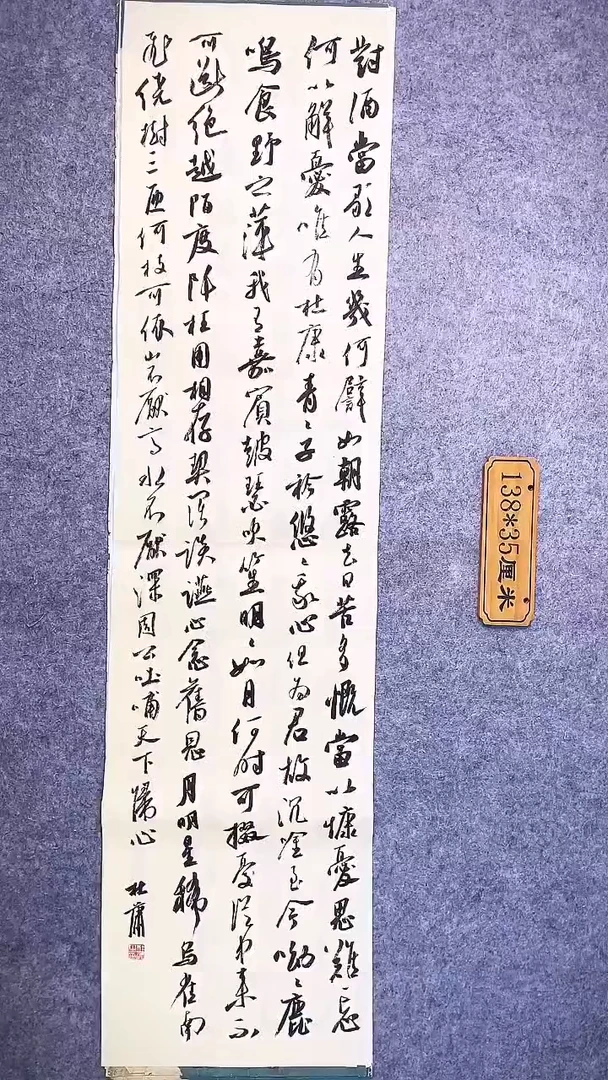 對酒當歌人生幾何譬如朝露去日苦多慨當以慷憂思難忘
何以解憂唯有杜康青〻子衿悠〻我心但為君故沉吟至今呦〻鹿
鳴食野之萍我有嘉賓鼓瑟吹笙明〻如月何時可掇憂從中來不
可斷絕越陌度阡枉用相存契闊談讌心念舊恩月明星稀烏雀南
飛繞樹三匝何枝可依山不厭高水不厭深周公吐哺天下歸心
杜
138*35厘米